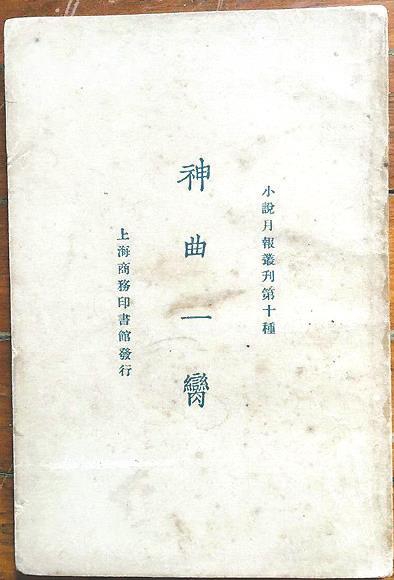 小說月報叢刊第十種
神曲一臠
上海商務印書館發行